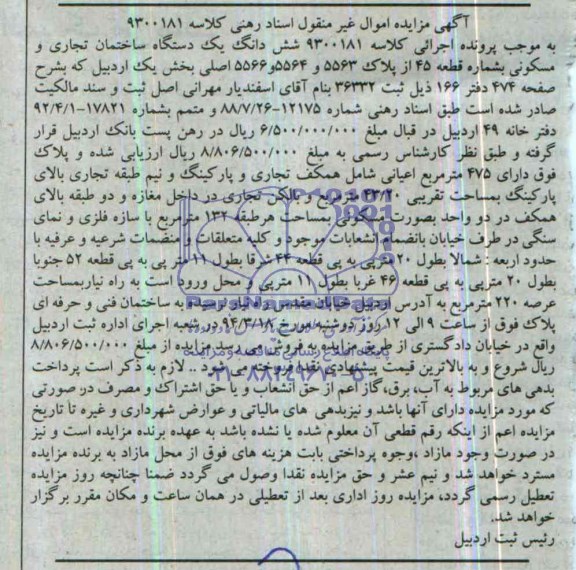 آگهی مزایده اموال غیر منقول اسناد رهنی کلاسه ۹۳۰۰۱۸۱
به موجب پرونده اجرائی کلاسه ۹۳۰۰۱۸۱ شش دانگ یک دستگاه ساختمان تجاری و
مسکونی بشماره قطعه ۴۵ از پلاک ۵۵۶۳ و ۵۵۶۴و۵۵۶۶ اصلی بخش یک اردبیل که بشرح
صفحه ۴۷۴ دفتر ۱۶۶ ذیل ثبت ۳۶۳۳۲ بنام آقای اسفندیار مهرانی اصل ثبت و سند مالکیت
صادر شده است طبق اسناد رهنی شماره ۱۲۱۷۵-۸۸/۷/۲۶ و متمم بشماره ۱۷۸۲۱-۹۲/۴/۱
دفتر خانه ۴۹ اردبیل در قبال مبلغ ۶/۵۰۰/۰۰۰/۰۰۰ ریال در رهن پست بانک اردبیل قرار
گرفته و طبق نظر کارشناس رسمی به مبلغ ۸/۸۰۶/۵۰۰/۰۰۰ ریال ارزیابی شده و پلاک
فوق دارای ۴۷۵ مترمربع اعیانی شامل همکف تجاری و پارکینگ و نیم طبقه تجاری بالای
پارکینگ بمساحت تقریبی مترمربع و بالکن تجاری در داخل مغازه و دو طبقه بالای
همکف در دو واحد بصورت مسکونی بمساحت هرطبقه ۱۳۲ مترمربع با سازه فلزی و نمای
سنگی در طرف خیابان بانضمام انشعابات موجود و کلیه متعلقات و منضمات شرعیه و عرفیه با
حدود اربعه : شمالا بطول ۲۰ متری به پی قطعه ۴۴ شرقا بطول ۱۱ متر پی به پی قطعه ۵۲ جنوبا
بطول ۲۰ متری به پی قطعه ۴۶ غربا بطول ۱۱ متری و محل ورود است به راه نیاربمساحت
عرصه ۲۲۰ مترمربع به آدرس اردبیل خیابان مقدس راه نیار نرسیده به ساختمان فنی و حرفه ای
پلاک فوق از ساعت ۹ الی ۱۲ روز دوشنبه مورخ ۹۴/۳/۱۸ در شعبه اجرای اداره ثبت اردبیل
واقع در خیابان دادگستری از طریق مزایده به فروش می رسد مزایده از مبلغ ۸/۸۰۶/۵۰۰/۰۰۰
ریال شروع و به بالاترین قیمت پیشنهادی نقدا فروخته می شود .. لازم به ذکر است پرداخت
بدهی های مربوط به آب، برق،گاز اعم از حق انشعاب و یا حق اشتراک و مصرف در صورتی
که مورد مزایده دارای آنها باشد و نیزبدهی های مالیاتی و عوارض شهرداری و غیره تا تاریخ
مزایده اعم از اینکه رقم قطعی آن معلوم شده یا نشده باشد به عهده برنده مزایده است و نیز
در صورت وجود مازاد ،وجوه پرداختی بابت هزینه های فوق از محل مازاد به برنده مزایده
مسترد خواهد شد و نیم عشر و حق مزایده نقدا وصول می گردد ضمنا چنانچه روز مزایده
تعطیل رسمی گردد، مزایده روز اداری بعد از تعطیلی در همان ساعت و مکان مقرر برگزار
خواهد شد.
رئیس ثبت اردبیل